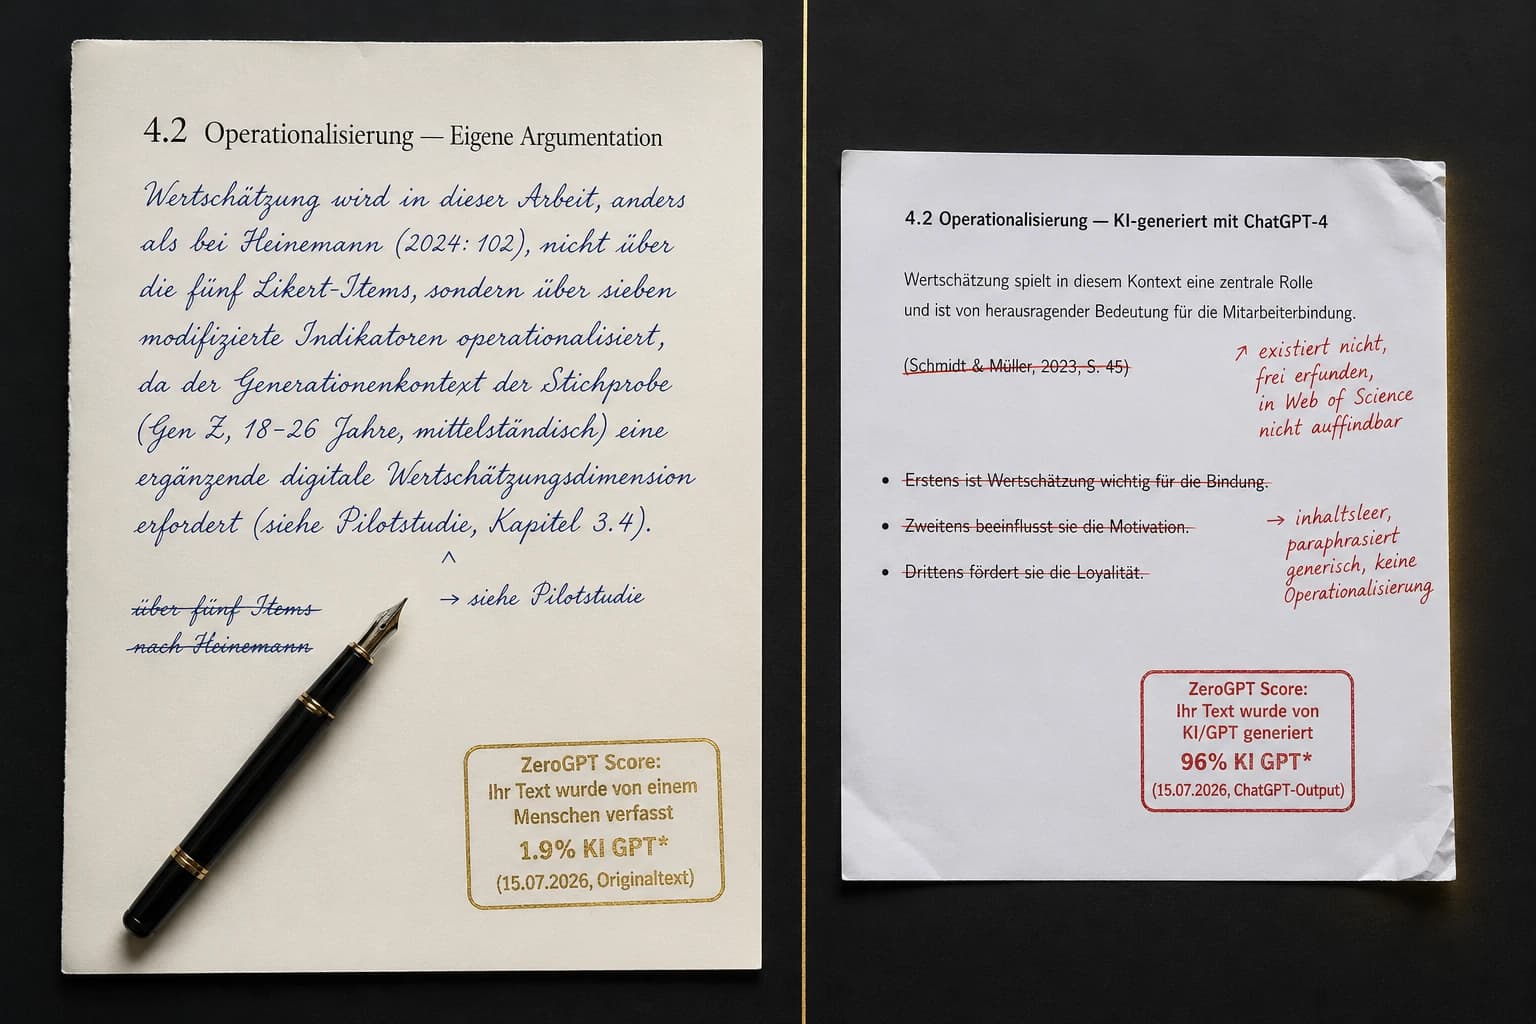 4.2 Operationalisierung — Eigene Argumentation
Wertschätzung wird in dieser Arbeit, anders
als bei Heinemann (2024: 102), nicht über
die fünf Likert-Items, sondern über sieben
modifizierte Indikatoren operationalisiert,
da der Generationenkontext der Stichprobe
(Gen Z, 18-26 Jahre, mittelständisch) eine
ergänzende digitale Wertschätzungsdimension
erfordert (siehe Pilotstudie, Kapitel 3.4).
^
→ siehe Pilotstudie
über fünf Items
nach Heinemann
ZeroGPT Score:
Ihr Text wurde von einem
Menschen verfasst
1.9% KI GPT*
(15.07.2026, Originaltext)
4.2 Operationalisierung — KI-generiert mit ChatGPT-4
Wertschätzung spielt in diesem Kontext eine zentrale Rolle
und ist von herausragender Bedeutung für die Mitarbeiterbindung.
(Schmidt & Müller, 2023, S. 45)
↗ existiert nicht,
frei erfunden,
in Web of Science
nicht auffindbar
• Erstens ist Wertschätzung wichtig für die Bindung.
• Zweitens beeinflusst sie die Motivation.
• Drittens fördert sie die Loyalität.
→ inhaltsleer,
paraphrasiert
generisch, keine
Operationalisierung
ZeroGPT Score:
Ihr Text wurde von
KI/GPT generiert
96% KI GPT*
(15.07.2026, ChatGPT-Output)